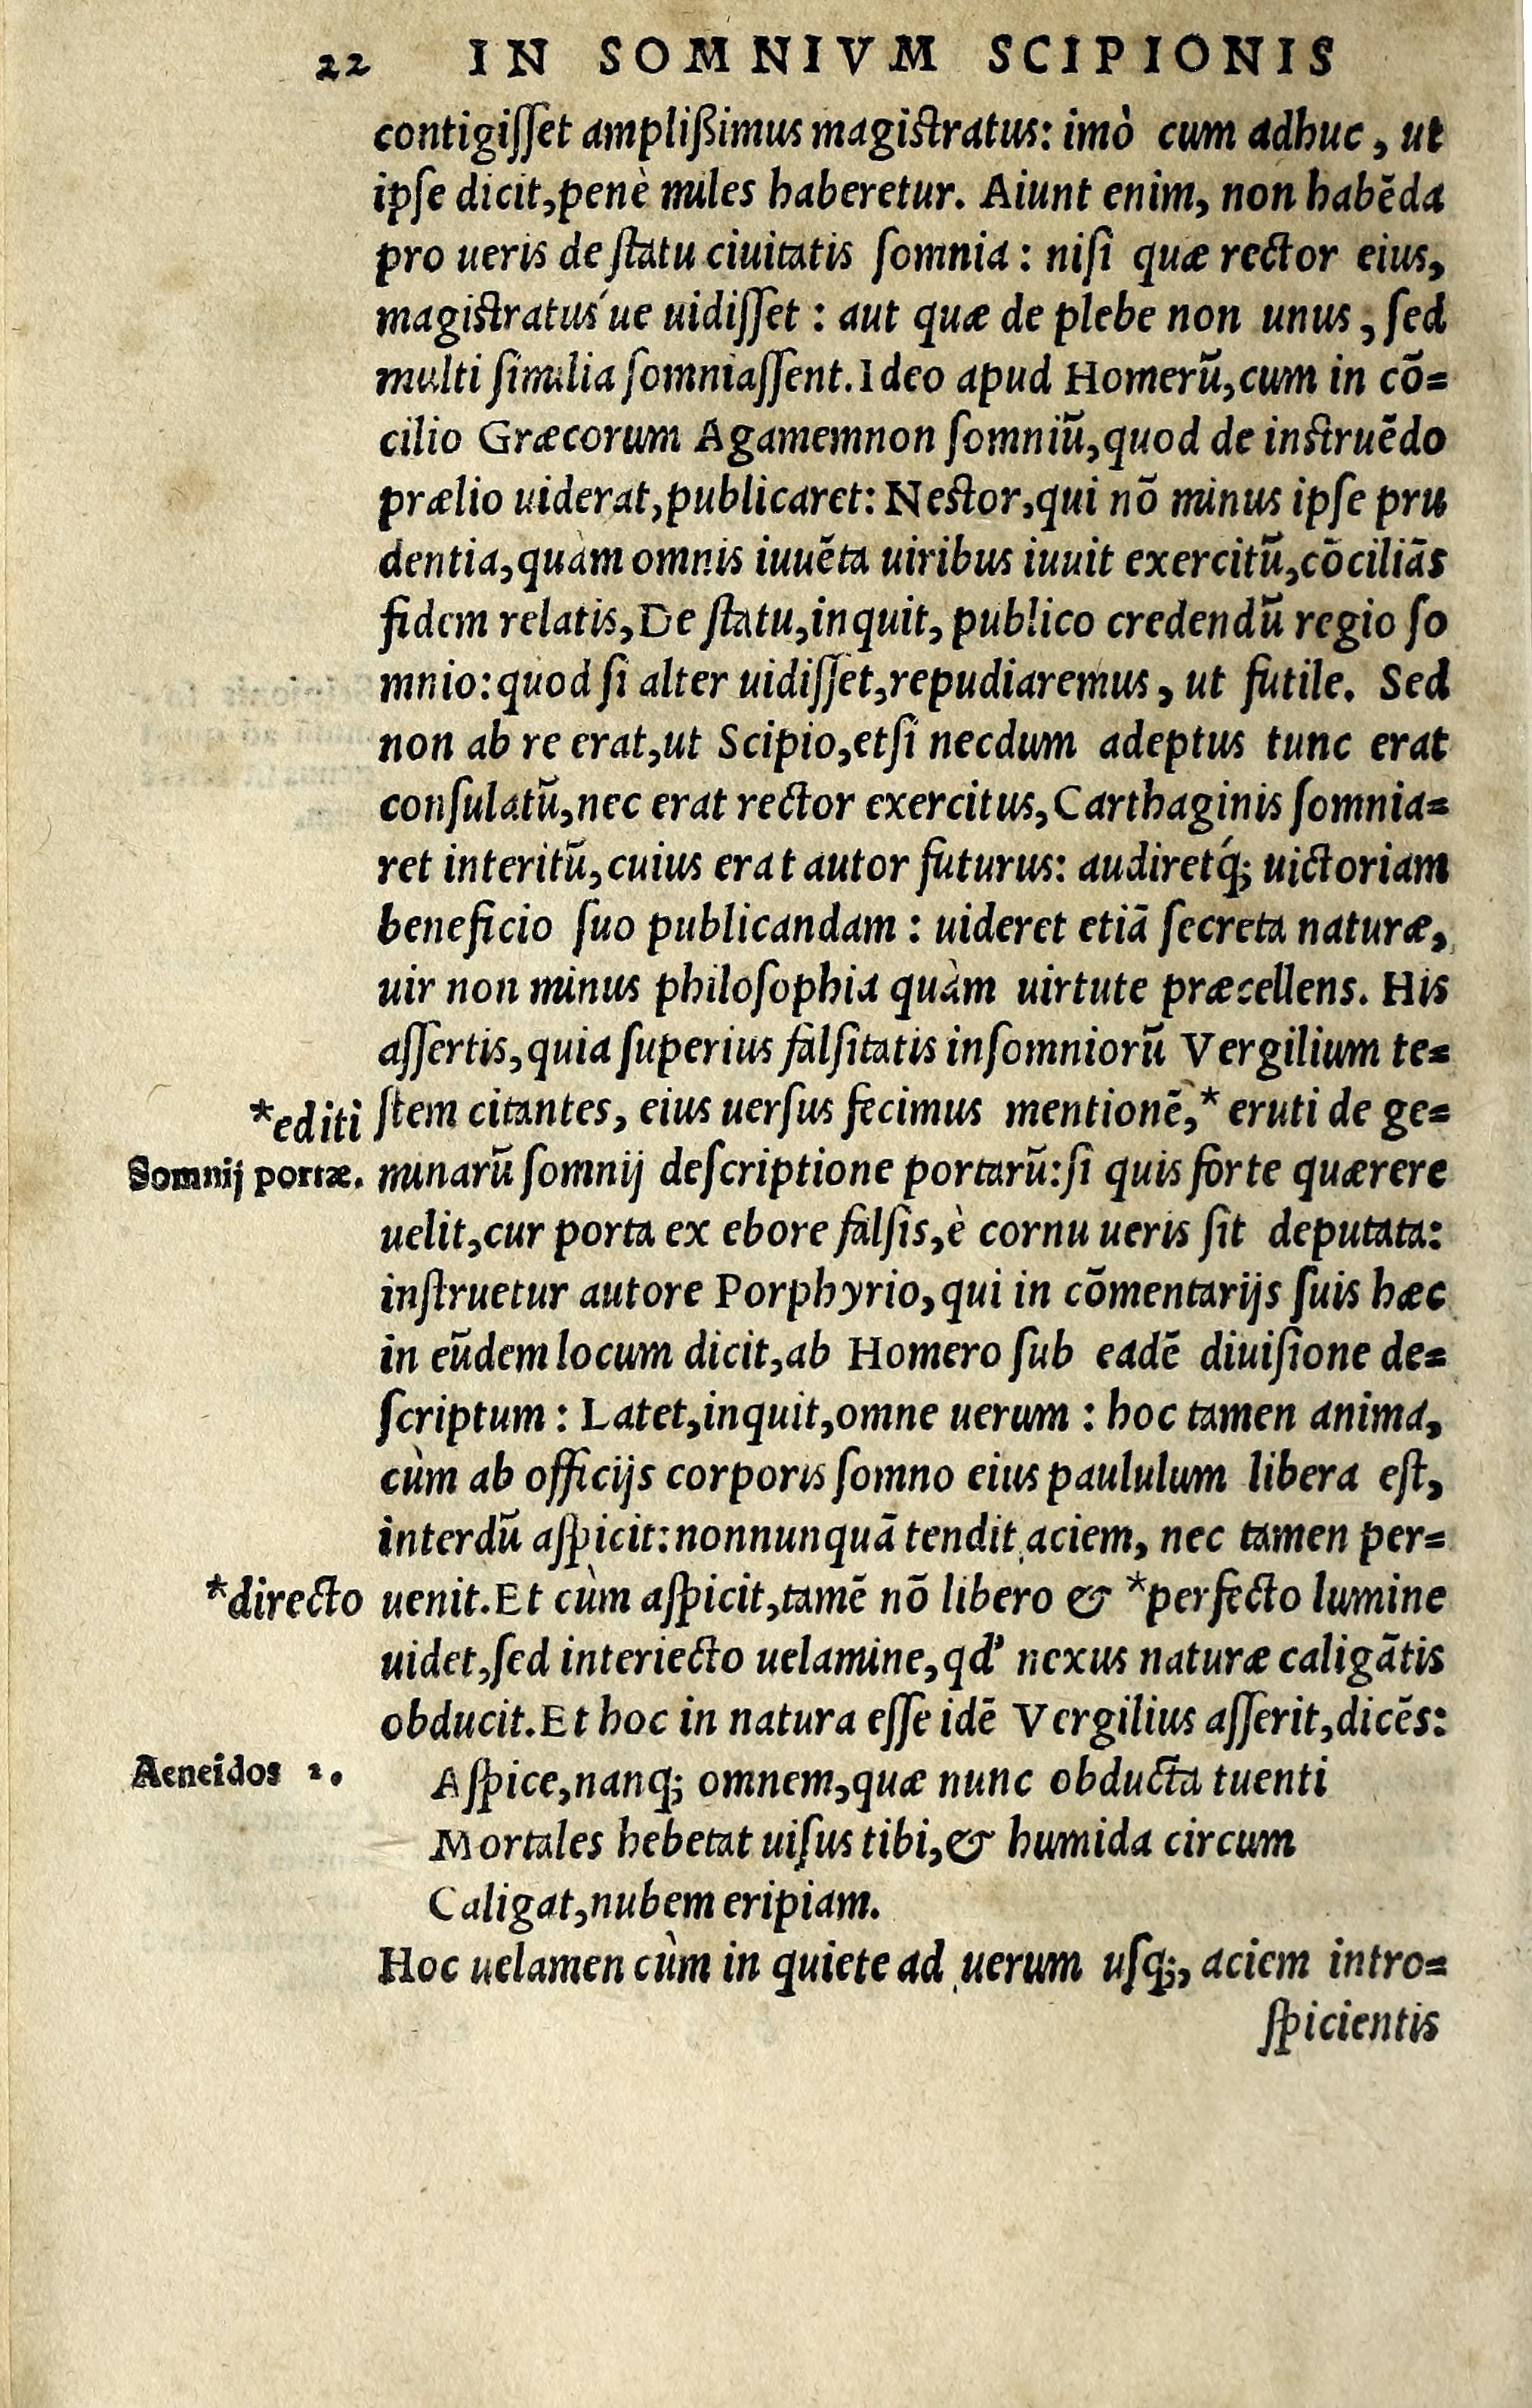 22 IN SOMNIVM SCIPIONIS
contigiſſet ampliſsimus magistratus: imò cum adhuc, ut
ipſe dicit, penè miles haberetur. Aiunt enim, non habēda
pro ueris de ſtatu ciuitatis ſomnia: niſi quæ rector eius,
magistratus'ue uidiſſet: aut quæ de plebe non unus, ſed
multi ſimilia ſomniaſſent. Ideo apud Homerū, cum in cō=
cilio Græcorum Agamemnon ſomniū, quod de instruēdo
prælio uiderat, publicaret: Nestor, qui nō minus ipſe pru
dentia, quàm omnis iuuēta uiribus iuuit exercitū, cōciliās
fidem relatis, De ſtatu, inquit, publico credendū regio ſo
mnio: quod ſi alter uidiſſet, repudiaremus, ut futile. Sed
non ab re erat, ut Scipio, etſi necdum adeptus tunc erat
conſulatū, nec erat rector exercitus, Carthaginis ſomnia=
ret interitū, cuius erat autor futurus: audiretq́; uictoriam
beneficio ſuo publicandam: uideret etiā ſecreta naturæ,
uir non minus philoſophia quàm uirtute præcellens. His
aſſertis, quia ſuperius falſitatis inſomniorū Vergilium te=
*editi ſtem citantes, eius uerſus fecimus mentionē, * eruti de ge=
Somnij portæ. minarū ſomnij deſcriptione portarū: ſi quis forte quærere
uelit, cur porta ex ebore falſis, è cornu ueris ſit deputata:
inſtruetur autore Porphyrio, qui in cōmentarijs ſuis hæc
in eūdem locum dicit, ab Homero ſub eadē diuiſione de=
ſcriptum: Latet, inquit, omne uerum: hoc tamen anima,
cùm ab officijs corporis ſomno eius paululum libera eſt,
interdū aſpicit: nonnunquā tendit aciem, nec tamen per=
*directo uenit. Et cùm aſpicit, tamē nō libero & *perfecto lumine
uidet, ſed interiecto uelamine, qd' nexus naturæ caligātis
obducit. Et hoc in natura eſſe idē Vergilius aſſerit, dicēs:
Aeneidos 2. Aſpice, nanq; omnem, quæ nunc obducta tuenti
Mortales hebetat uiſus tibi, & humida circum
Caligat, nubem eripiam.
Hoc uelamen cùm in quiete ad uerum uſq;, aciem intro=
ſpicientis